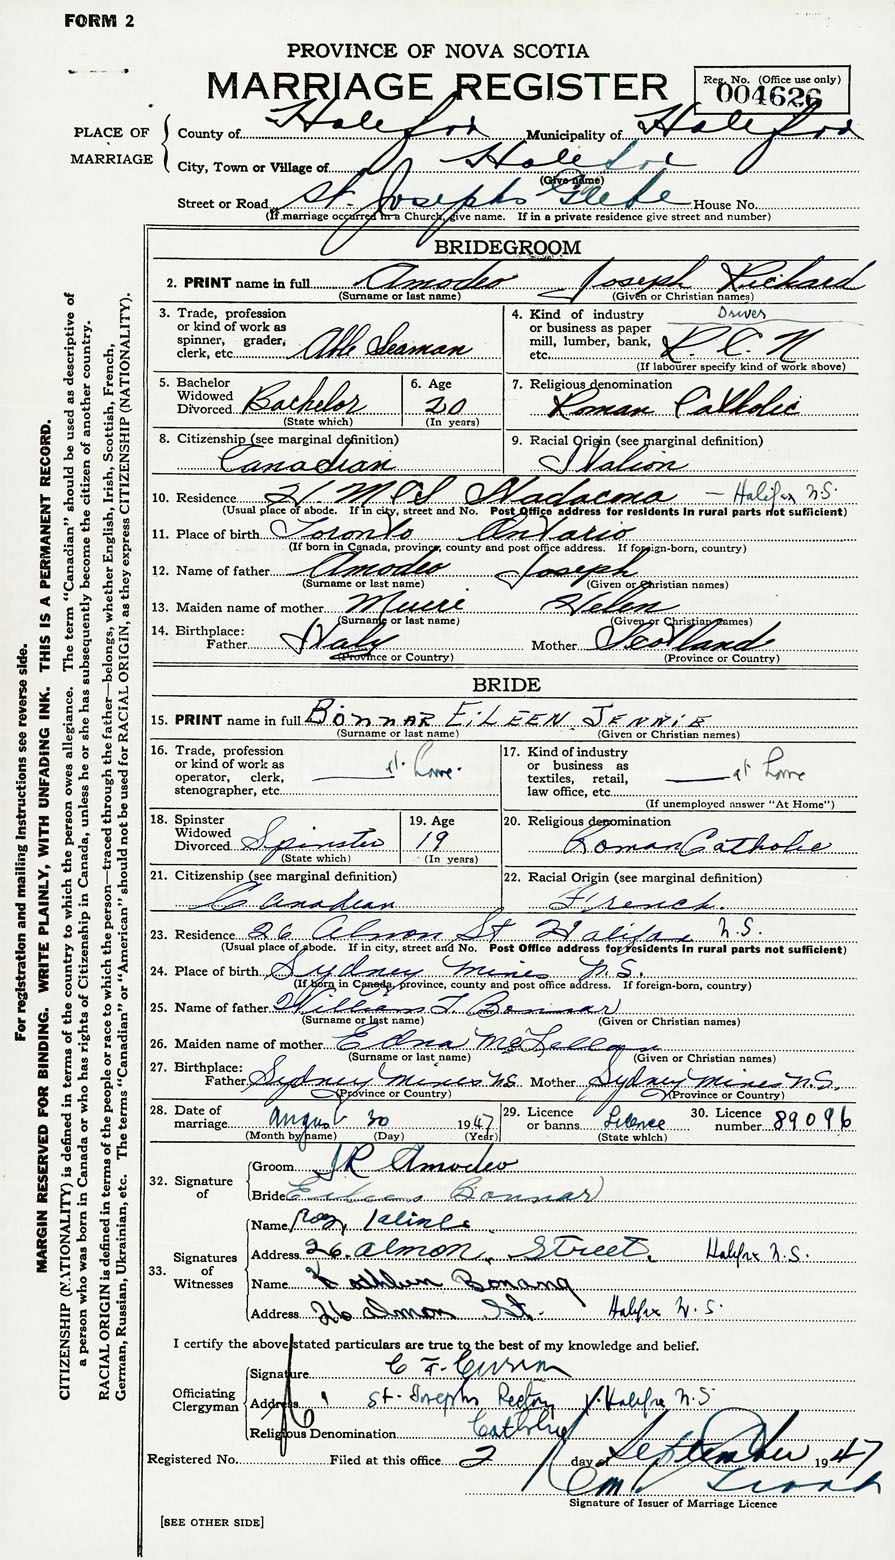 FORM 2
PROVINCE OF NOVA SCOTIA
MARRIAGE REGISTER
Reg. No. (Office use only)
004626
PLACE OF MARRIAGE
County of Halifax Municipality of Halifax
City, Town or Village of Halifax
(Give name)
Street or Road St. Josephs Glebe House No.
(If marriage occurred in a Church, give name. If in a private residence give street and number)
BRIDEGROOM
2. PRINT name in full Amodeo Joseph Richard
(Surname or last name) (Given or Christian names)
3. Trade, profession or kind of work as spinner, grader, clerk, etc. Able Seaman
4. Kind of industry or business as paper mill, lumber, bank, etc. Driver R.C.N
(If labourer specify kind of work above)
5. Bachelor Widowed Divorced Bachelor
(State which)
6. Age 20
(In years)
7. Religious denomination
Roman Catholic
8. Citizenship (see marginal definition)
Canadian
9. Racial Origin (see marginal definition)
Italion
10. Residence H M C S Stadacona — Halifax N.S.
(Usual place of abode. If in city, street and No. Post Office address for residents in rural parts not sufficient)
11. Place of birth Toronto Ontario
(If born in Canada, province, county and post office address. If foreign-born, country)
12. Name of father Amodeo Joseph
(Surname or last name) (Given or Christian names)
13. Maiden name of mother Helen
(Surname or last name) (Given or Christian names)
14. Birthplace: Father Italy Mother Scotland
(Province or Country) (Province or Country)
BRIDE
15. PRINT name in full BONNAR EILEEN JENNIE
(Surname or last name) (Given or Christian names)
16. Trade, profession or kind of work as operator, clerk, stenographer, etc. at Home.
17. Kind of industry or business as textiles, retail, law office, etc. at Home
(If unemployed answer "At Home")
18. Spinster Widowed Divorced Spinster
(State which)
19. Age 19
(In years)
20. Religious denomination
Roman Catholic
21. Citizenship (see marginal definition)
Canadian
22. Racial Origin (see marginal definition)
French.
23. Residence 26 Almon St Halifax N.S.
(Usual place of abode. If in city, street and No. Post Office address for residents in rural parts not sufficient)
24. Place of birth Sydney Mines N.S.
(If born in Canada, province, county and post office address. If foreign-born, country)
25. Name of father William T. Bonnar
(Surname or last name) (Given or Christian names)
26. Maiden name of mother Edna McLellan
(Surname or last name) (Given or Christian names)
27. Birthplace: Father Sydney Mines N.S. Mother Sydney Mines N.S.
(Province or Country) (Province or Country)
28. Date of marriage August 30 1947
(Month by name) (Day) (Year)
29. Licence or banns Licence
(State which)
30. Licence number 89096
32. Signature of
Groom J R Amodeo
Bride Eileen Bonnar
33. Signatures of Witnesses
Name Roy
Address 26 Almon Street. Halifax N.S.
Name Kathleen Bonang
Address 26 Almon St. Halifax N.S.
I certify the above stated particulars are true to the best of my knowledge and belief.
Officiating Clergyman
Signature C F Curran
Address St. Josephs Rectory Halifax N.S
Religious Denomination Catholic
Registered No. Filed at this office 2 day of September 1947
Signature of Issuer of Marriage Licence
[SEE OTHER SIDE]
For registration and mailing instructions see reverse side.
MARGIN RESERVED FOR BINDING. WRITE PLAINLY, WITH UNFADING INK. THIS IS A PERMANENT RECORD.
CITIZENSHIP (NATIONALITY) is defined in terms of the country to which the person owes allegiance. The term "Canadian" should be used as descriptive of
a person who was born in Canada or who has rights of Citizenship in Canada, unless he or she has subsequently become the citizen of another country.
RACIAL ORIGIN is defined in terms of the people or race to which the person—traced through the father—belongs, whether English, Irish, Scottish, French,
German, Russian, Ukrainian, etc. The terms "Canadian" or "American" should not be used for RACIAL ORIGIN, as they express CITIZENSHIP (NATIONALITY).